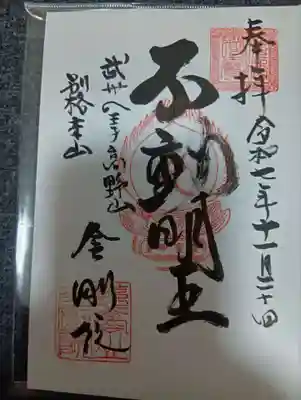 奉拝
令和七年十一月二十四
不動明王
武州八王子高野山
別格本山
金剛院